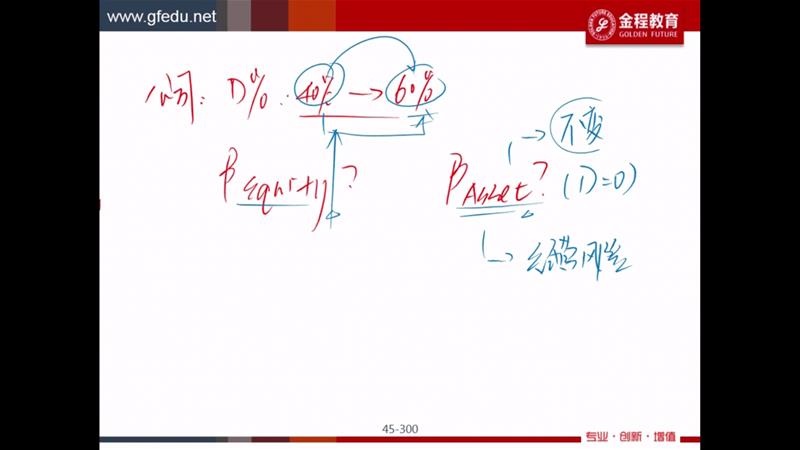 www.gfedu.net
金程教育
GOLDEN FUTURE
公司: D%: 40% → 60%
→ 不变
β Equity?
β Asset? (D=0)
→ 经营风险
45-300
专业·创新·增值